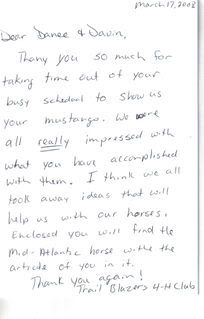 March 17, 2008
Dear Danee & Davin,
Thany you so much for
taking time out of your
busy schedual to show us
your mustangs. We were
all really impressed with
what you have accomplished
with them. I think we all
took away ideas that will
help us with our horses.
Enclosed you will find the
Mid-Atlantic horse with the
article of you in it.
Thank you again!
Trail Blazers 4-H Club